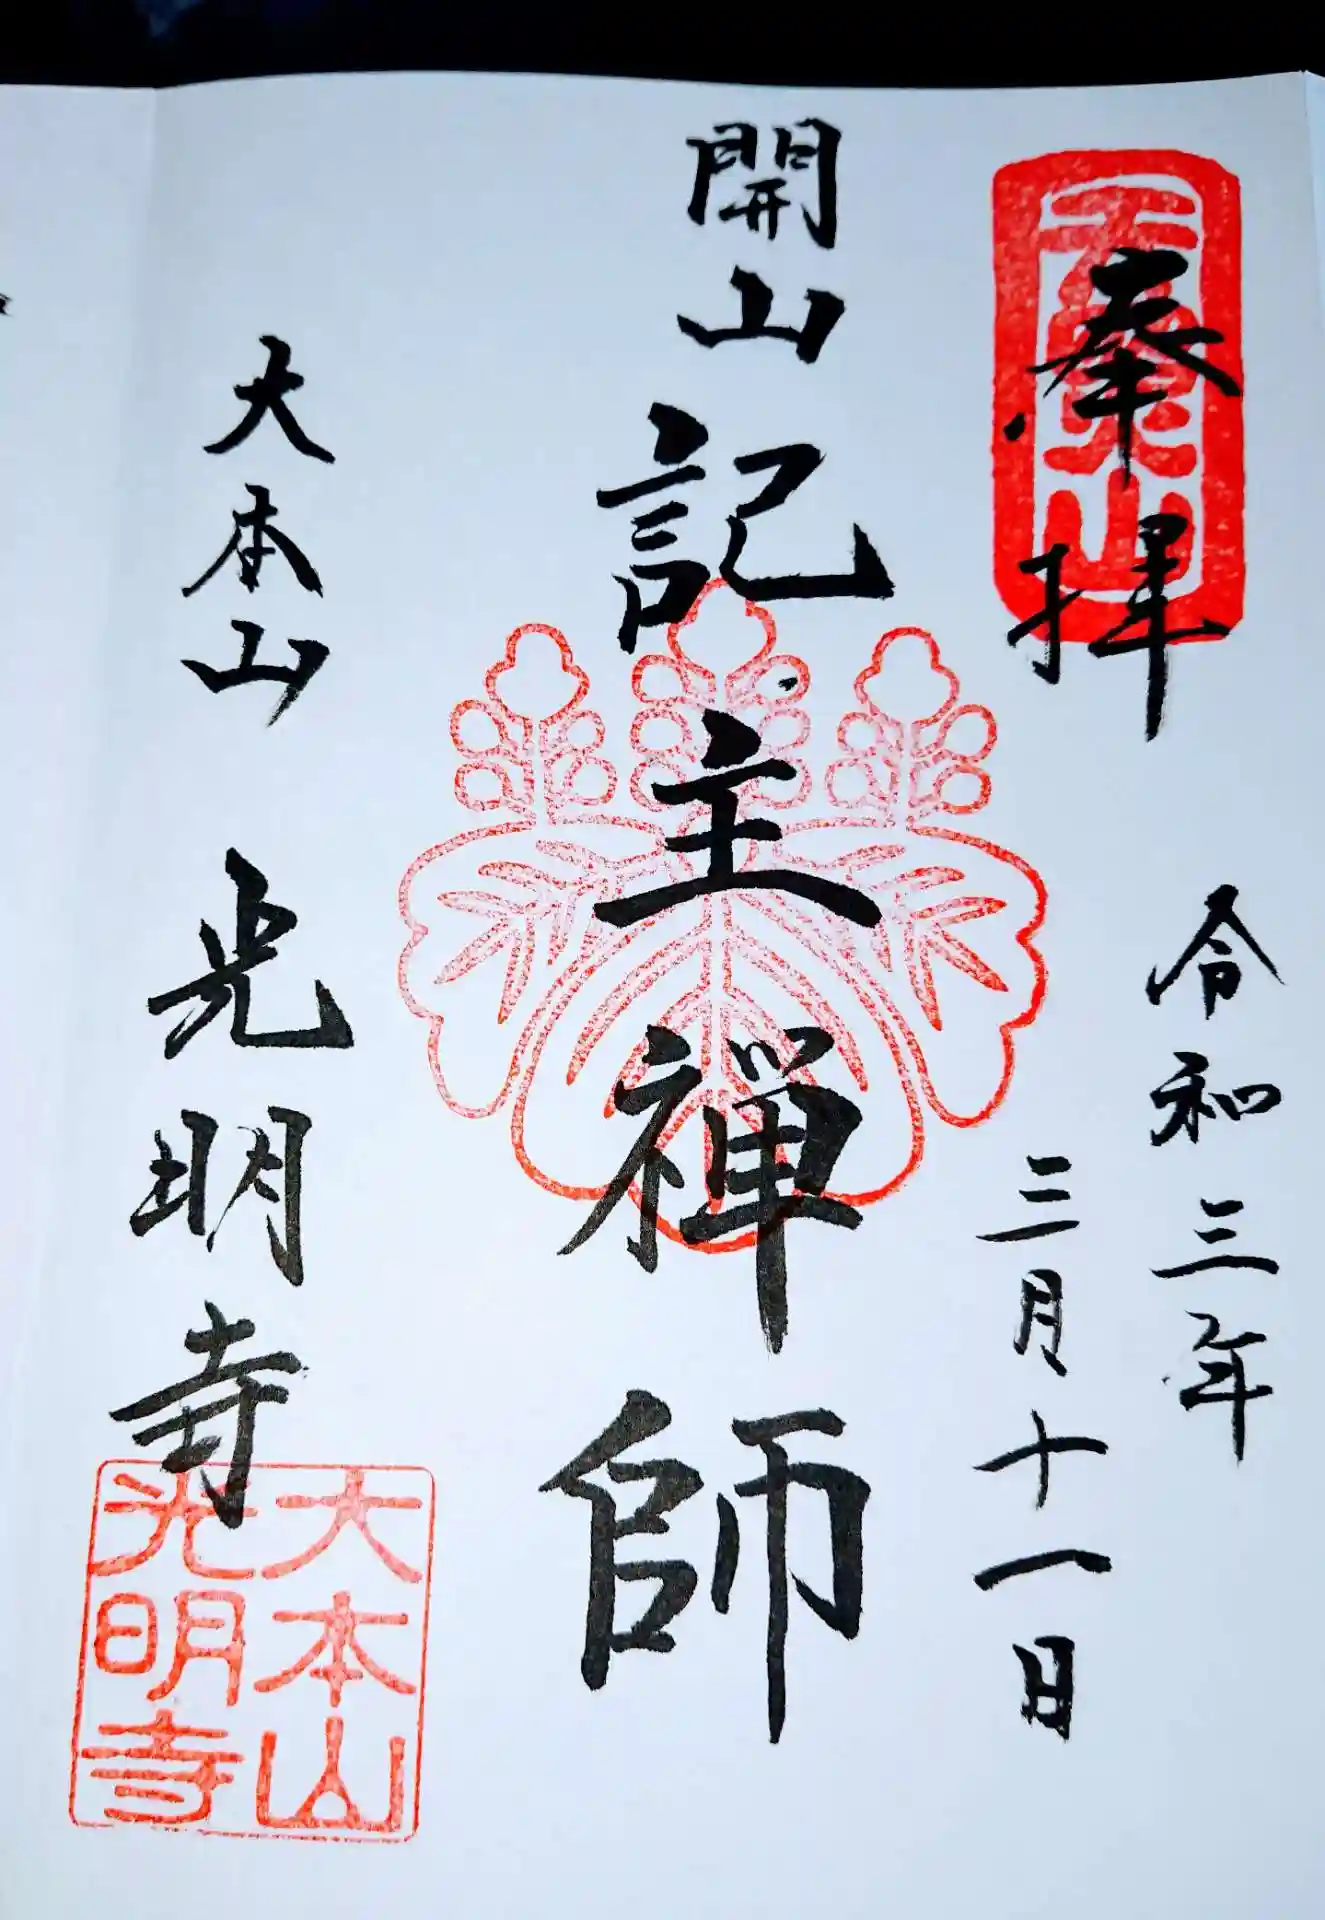 奉拝
令和三年
三月十一日
開山
記主禅師
大本山
光明寺
天照山
大本山
光明寺